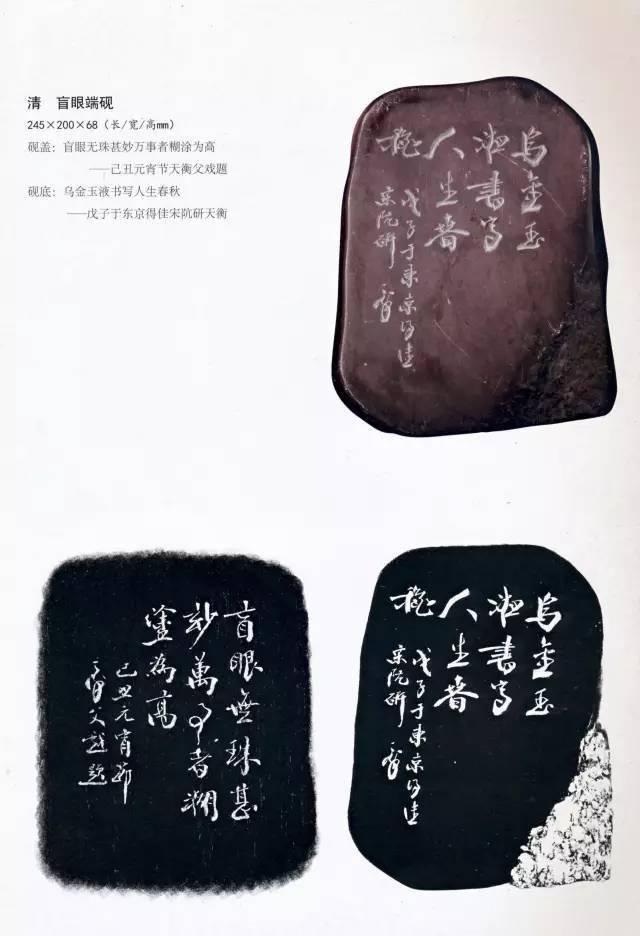 清 盲眼端砚
245×200×68（长/宽/高mm）
砚盖：盲眼无珠甚妙万事者糊涂为高
——己丑元宵节天衡父戏题
砚底：乌金玉液书写人生春秋
——戊子于东京得佳宋阬研天衡
乌金玉
液书写
人生春
秋
戊子于东京得佳
宋阬研 天衡
盲眼無珠甚
妙萬事者糊
塗為高
己丑元宵節
天衡父戲題
乌金玉
液书写
人生春
秋
戊子于东京得佳
宋阬研 天衡